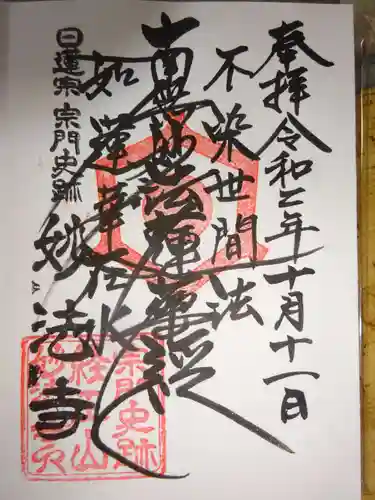 奉拝令和二年十月十一日
不染世間法
南無妙法蓮華経
如蓮華在水
日蓮宗 宗門史跡
妙法寺
宗門史跡